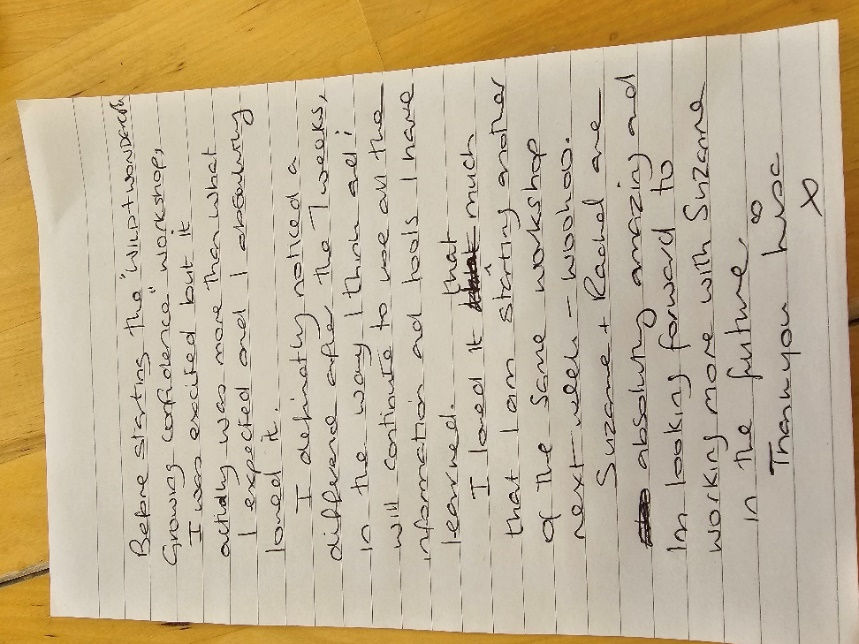 Before starting the "Wild + Wonderful
Growing confidence" workshop,
I was excited but it
actually was more than what
I expected and I absolutely
loved it.
I definatly noticed a
difference after the 7 weeks,
in the way I think and
will continue to use all the
information and tools I have
learned.
I loved it that much
that I am starting another
of the same workshop
next week - woohoo.
Suzanne + Rachel are
absolutely amazing and
Im looking forward to
working more with Suzanne
in the future.
Thankyou Lisa
X